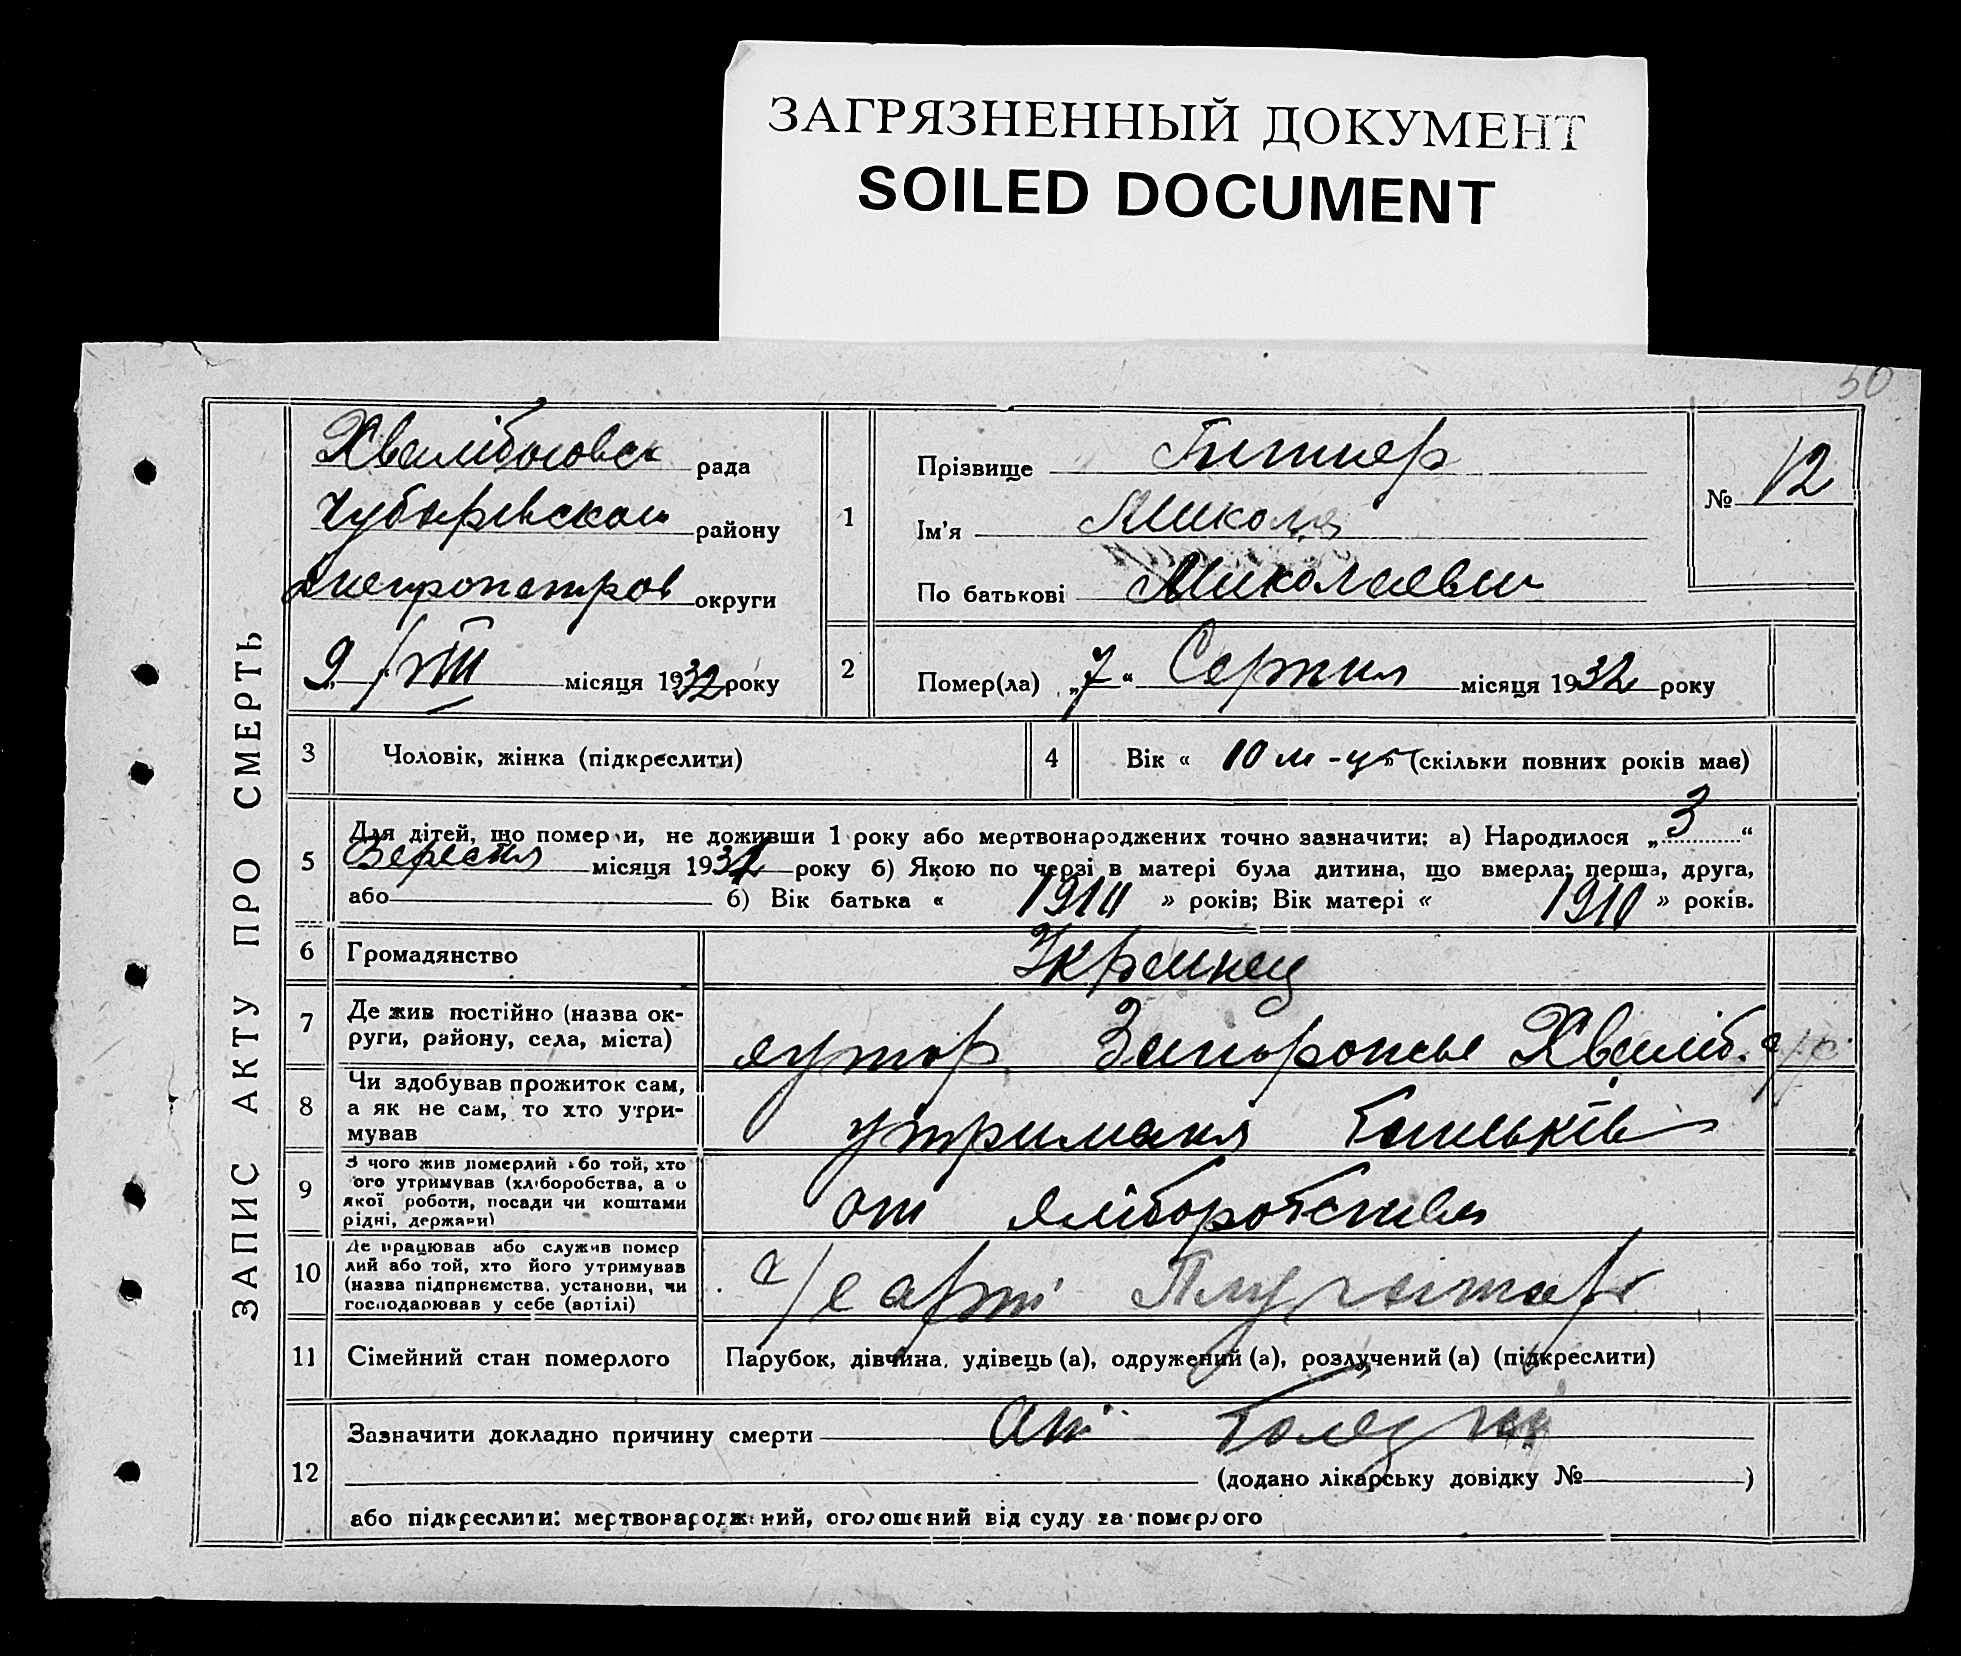 ЗАГРЯЗНЕННЫЙ ДОКУМЕНТ
SOILED DOCUMENT
50
ЗАПИС АКТУ ПРО СМЕРТЬ
рада
району
округи
9 / VIII місяця 1932 року
1
Прізвище
Ім'я Микола
По батькові
№ 12
2
Помер(ла) „7“ Серпня місяця 1932 року
3 Чоловік, жінка (підкреслити)
4 Вік « 10 м-ц » (скільки повних років має)
5
Для дітей, що померли, не доживши 1 року або мертвонароджених точно зазначити: а) Народилося „ 3 “
Вересня місяця 193 року б) Якою по черзі в матері була дитина, що вмерла: перша, друга,
або б) Вік батька « » років; Вік матері « 1910 » років.
6 Громадянство Украинец
7 Де жив постійно (назва ок-
руги, району, села, міста)
хутор Запорожье Хваліб. с/р
8 Чи здобував прожиток сам,
а як не сам, то хто утри-
мував
утриманя батьків
9 З чого жив померлий або той, хто
його утримував (хліборобства, а о
якої роботи, посади чи коштами
рідні, держави)
от хліборобства
10 Де працював або служив помер
лий або той, хто його утримував
(назва підприємства, установи, чи
господарював у себе (артілі)
11 Сімейний стан померлого
Парубок, дівчина, удівець (а), одружений (а), розлучений (а) (підкреслити)
12
Зазначити докладно причину смерти
(додано лікарську довідку № )
або підкреслити: мертвонароджений, оголошений від суду за померлого